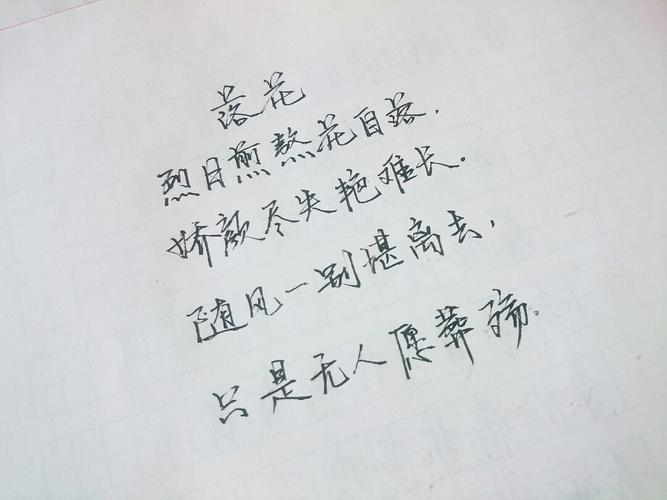 落花
烈日煎熬花自落,
娇颜尽失艳难长.
随风一别堪离去,
只是无人愿葬殇.